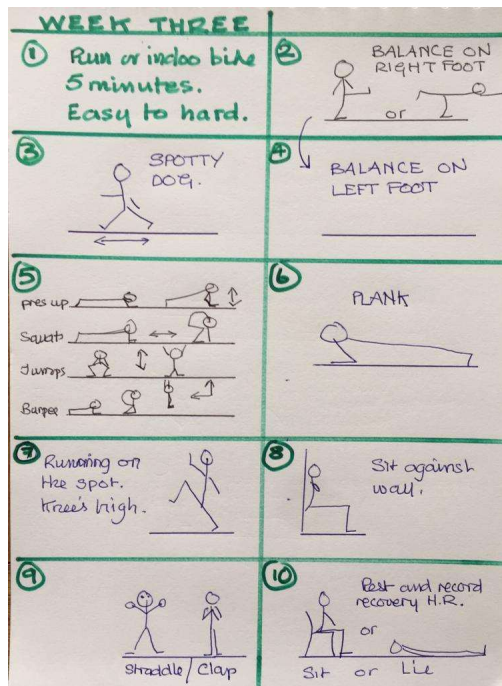 WEEK THREE
1
Run or indoo bike
5 minutes.
Easy to hard.
2
BALANCE ON
RIGHT FOOT
or
3
SPOTTY
DOG.
4
BALANCE ON
LEFT FOOT
5
pres up
Squats
Jumps
Burpee
6
PLANK
7
Running on
the spot.
Knee's high.
8
Sit against
wall.
9
Straddle / Clap
10
Rest and record
recovery H.R.
or
Sit or Lie